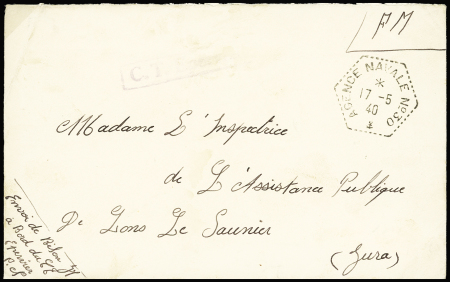 FM
AGENCE NAVALE No 30
17-5
40
Madame L'Inspectrice
de L'Assistance Publique
De Lons Le Saunier
(Jura)
Envoi de
à Bord du